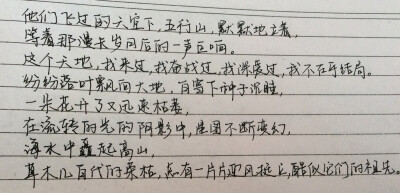 他们飞过的天空下，五行山，默默地立着，
等着那漫长岁月后的一声巨响。
这个天地，我来过，我奋战过，我深爱过，我不在乎结局。
纷纷落叶飘向大地，白雪下种子沉睡，
一朵花开了又迅速枯萎，
在流转的光的阴影中，星图不断变幻，
海水中矗起高山，
草木几百代的荣枯，总有一片片迎风挺上，酷似它们的祖先。